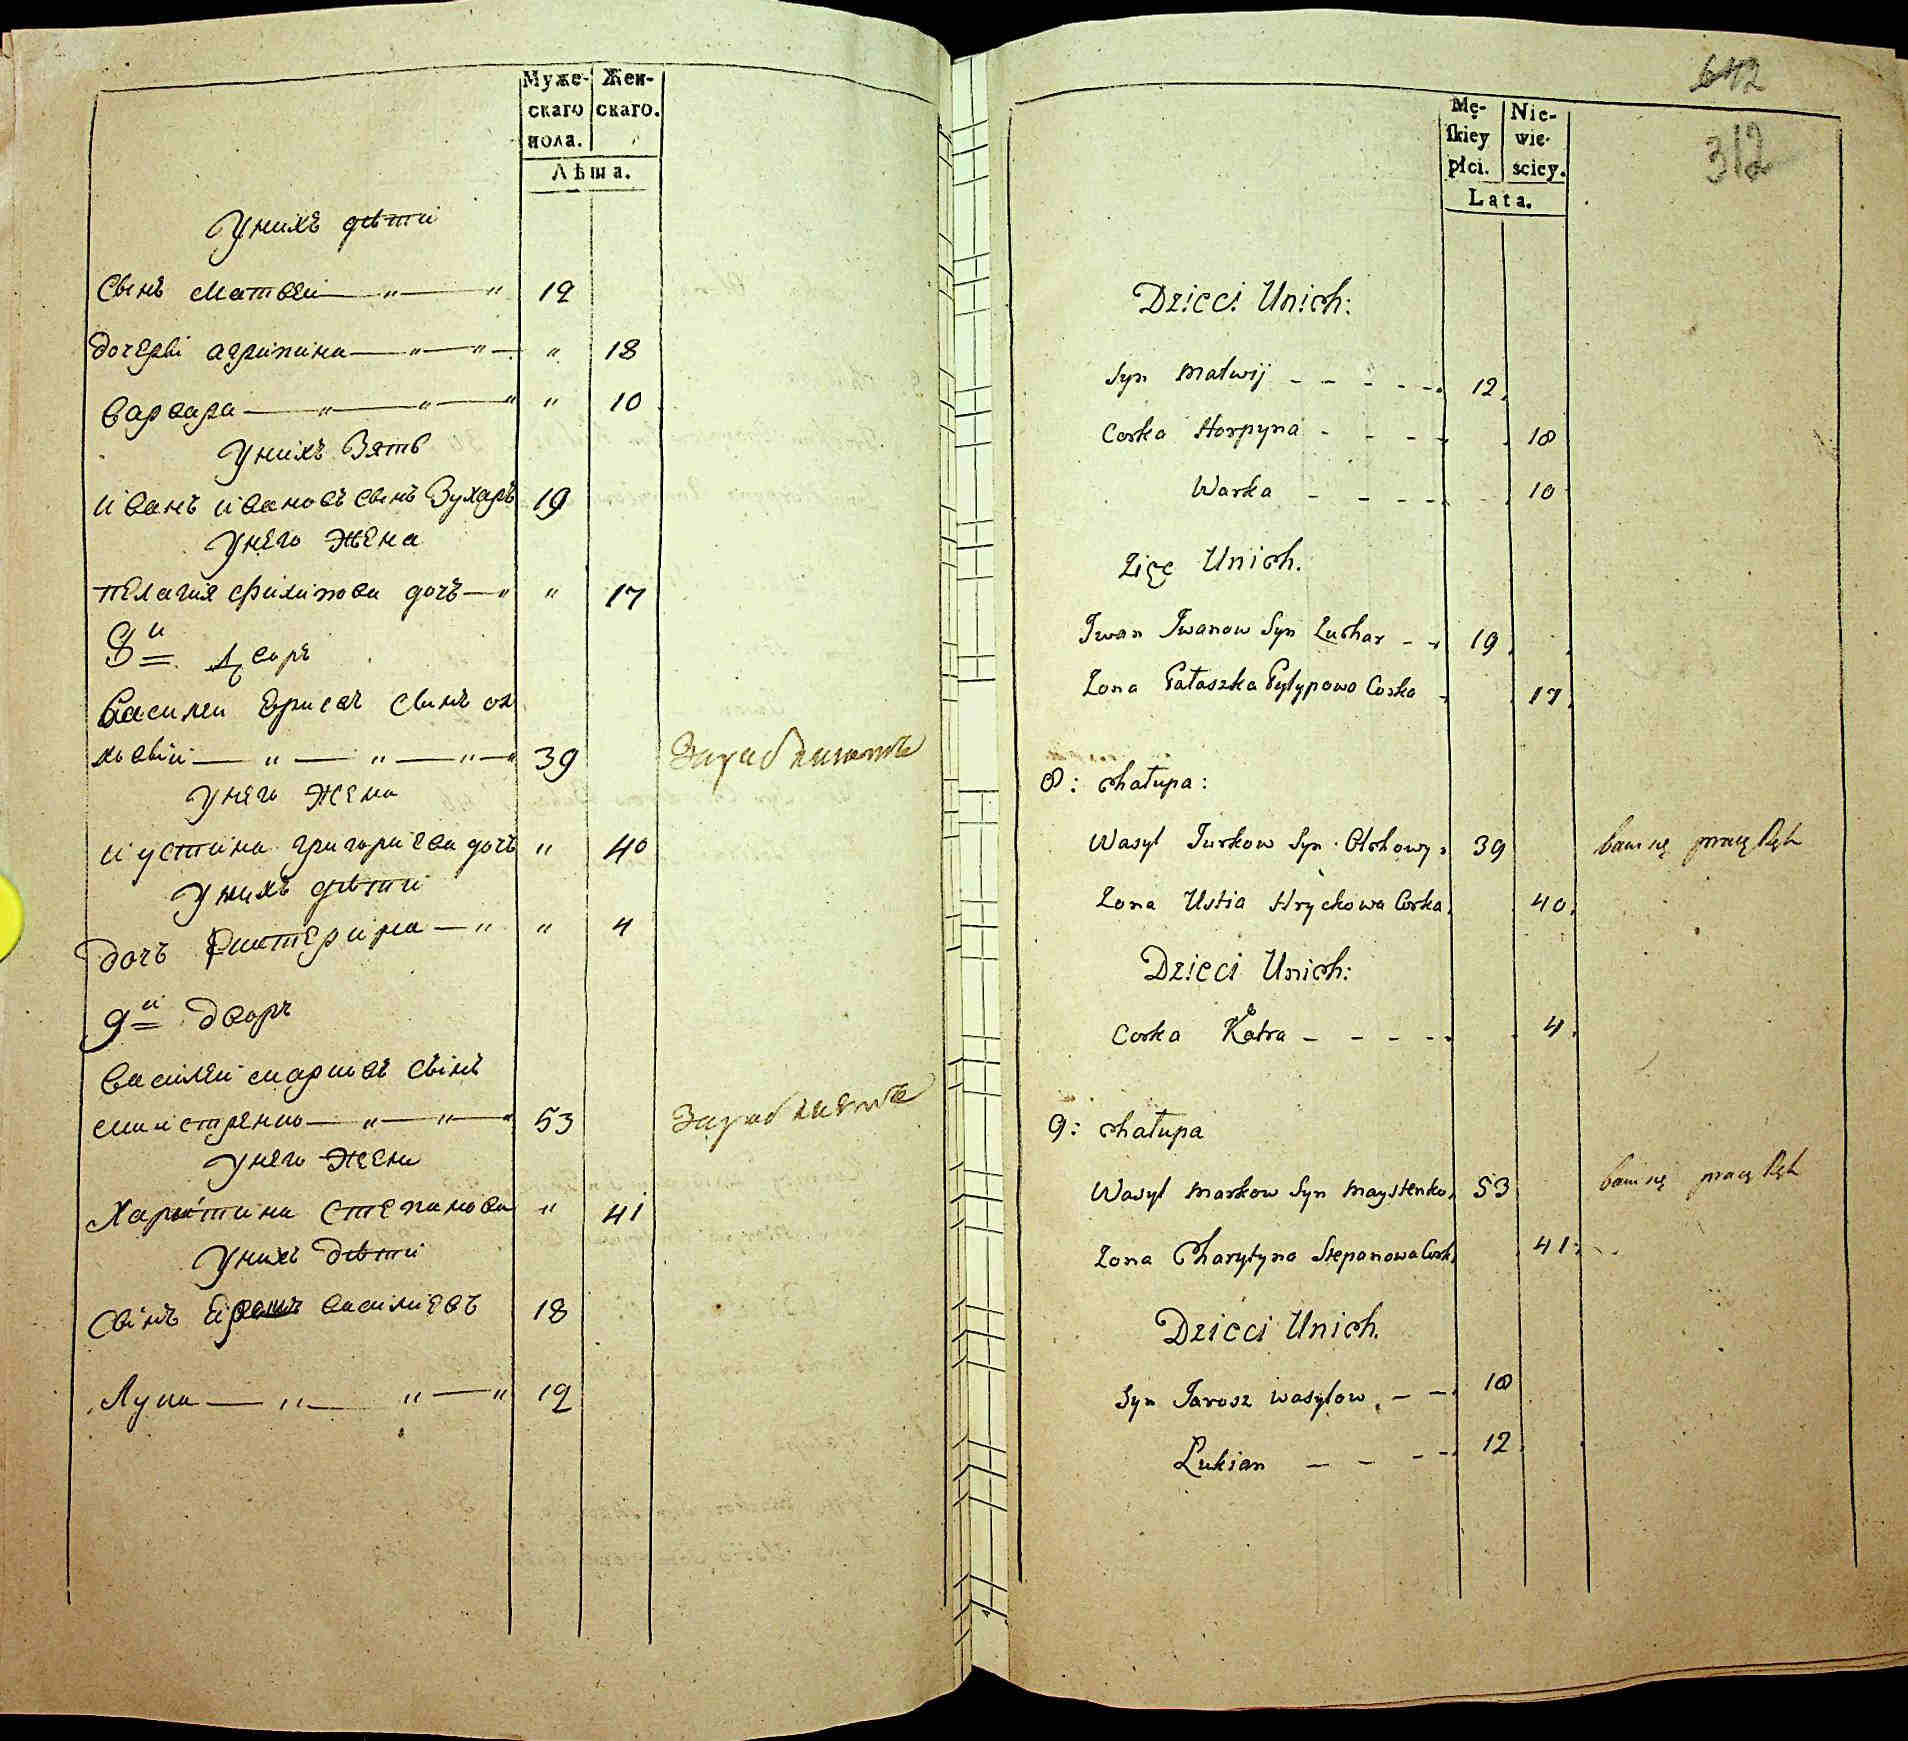 Муже-
скаго
пола.
Жен-
скаго.
Лѣта.
Унихъ дѣти
Сынъ Матвей 12
Дочери агрипина " 18
варвара " 10
Унихъ Зять
иванъ ивановъ сынъ Зухаръ 19
Унего жена
пелагия филипова дочь " 17
8й дворъ
василей
39
Унего жена
иустина григориева дочь " 40
Унихъ дѣти
дочь " 4
9й дворъ
василей марковъ сынъ
53
Унего жена
Харитина степанова " 41
Унихъ дѣти
Сынъ василиевъ 18
Лука 12
642
312
Mę-
skiey
płci.
Nie-
wie-
sciey.
Lata.
Dzieci Unich:
Syn Matwij 12
Corka Horpyna 18
Warka 10
Zięc Unich.
Iwan Iwanow Syn Zuchar 19
Zona Pałaszka Pylypowa Corka 17
8: Chałupa:
Wasyl Jurkow Syn Olchowy 39
Zona Ustia Hryckowa Corka 40
Dzieci Unich:
Corka Katra 4
9: Chałupa
Wasyl Markow Syn Maystenko 53
Zona Charytyna Stepanowa Cork 41
Dzieci Unich.
Syn Jarosz Wasylow 18
Lukian 12